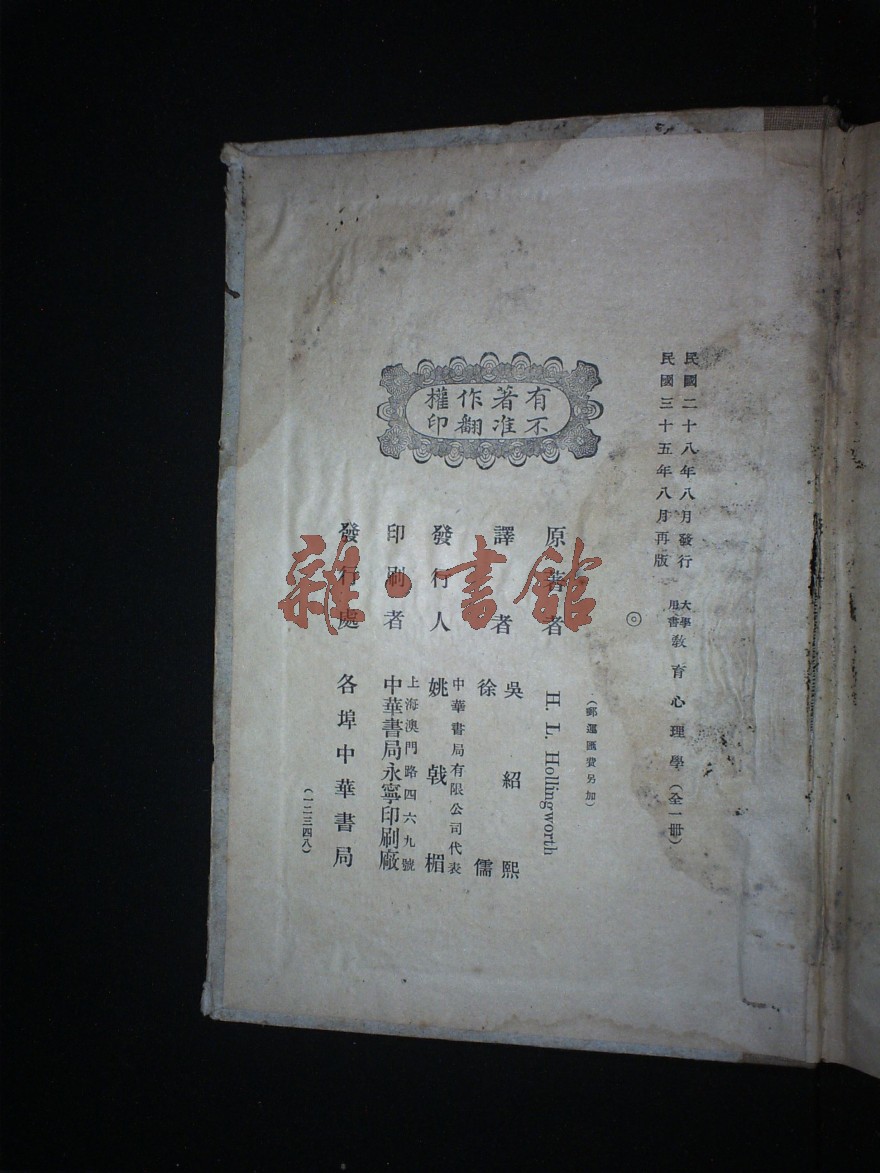 民國二十八年八月發行
民國三十五年八月再版
大學用書 教育心理學（全一冊）
◎
（郵運匯費另加）
有著作權
不准翻印
原著者 H. L. Hollingworth
譯者 吳紹熙
徐儒
發行人 中華書局有限公司代表
姚戟楣
印刷者 上海澳門路四六九號
中華書局永寧印刷廠
發行處 各埠中華書局
（一二三四八）
雜·書館